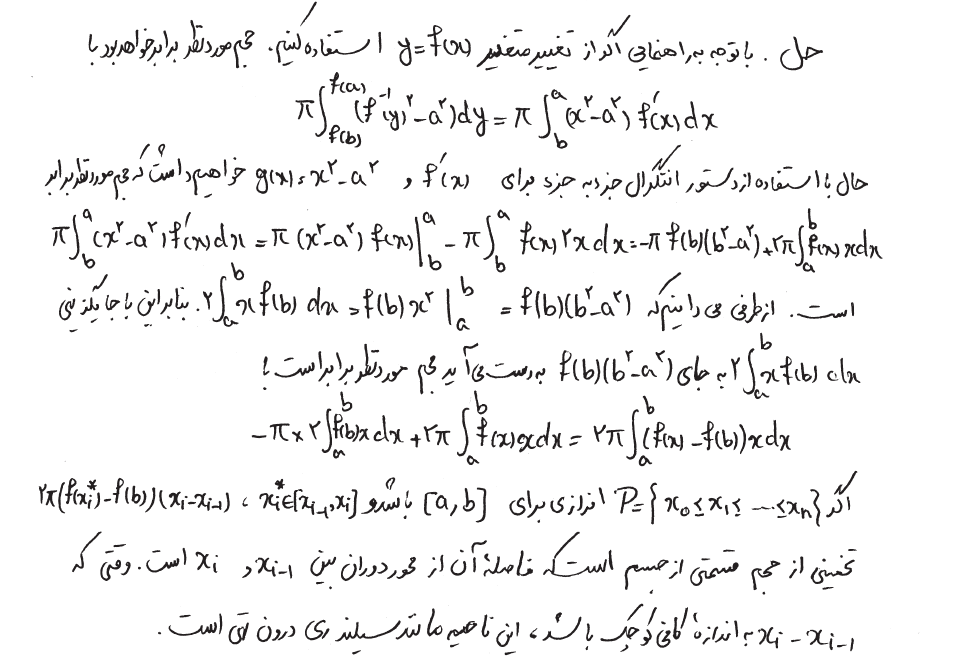 حل . با توجه به راهنمایی اگر از تغییر متغیر y = f(x) استفاده کنیم. حجم موردنظر برابر خواهد بود با
π∫_{f(b)}^{f(a)} (f⁻¹(y)^۲ - a^۲)dy = π∫_b^a (x^۲ - a^۲) f'(x) dx
حال با استفاده از دستور انتگرال جزء به جزء برای f'(x) و g(x) = x^۲ - a^۲ خواهیم داشت که حجم موردنظر برابر
π∫_b^a (x^۲ - a^۲) f'(x) dx = π (x^۲ - a^۲) f(x) |_b^a - π∫_b^a f(x) ۲x dx = -π f(b)(b^۲ - a^۲) + ۲π∫_a^b f(x) x dx
است. از طرفی می دانیم که ۲∫_a^b x f(b) dx = f(b) x^۲ |_a^b = f(b)(b^۲ - a^۲). بنابراین با جایگزینی
۲∫_a^b x f(b) dx به جای f(b)(b^۲ - a^۲) به دست می آید حجم موردنظر برابر است با
-π × ۲∫_a^b f(b) x dx + ۲π∫_a^b f(x) x dx = ۲π∫_a^b (f(x) - f(b)) x dx
اگر P = {x₀ ≤ x₁ ≤ ... ≤ xₙ} افرازی برای [a, b] باشد و x*ᵢ ∈ [xᵢ₋₁, xᵢ] ، ۲π(f(x*ᵢ) - f(b))(xᵢ - xᵢ₋₁)
تخمینی از حجم قسمتی از جسم است که فاصلهٔ آن از محور دوران بین xᵢ₋₁ و xᵢ است. وقتی که
xᵢ - xᵢ₋₁ به اندازهٔ کافی کوچک باشد، این ناحیه مانند سیلندری درون تهی است.